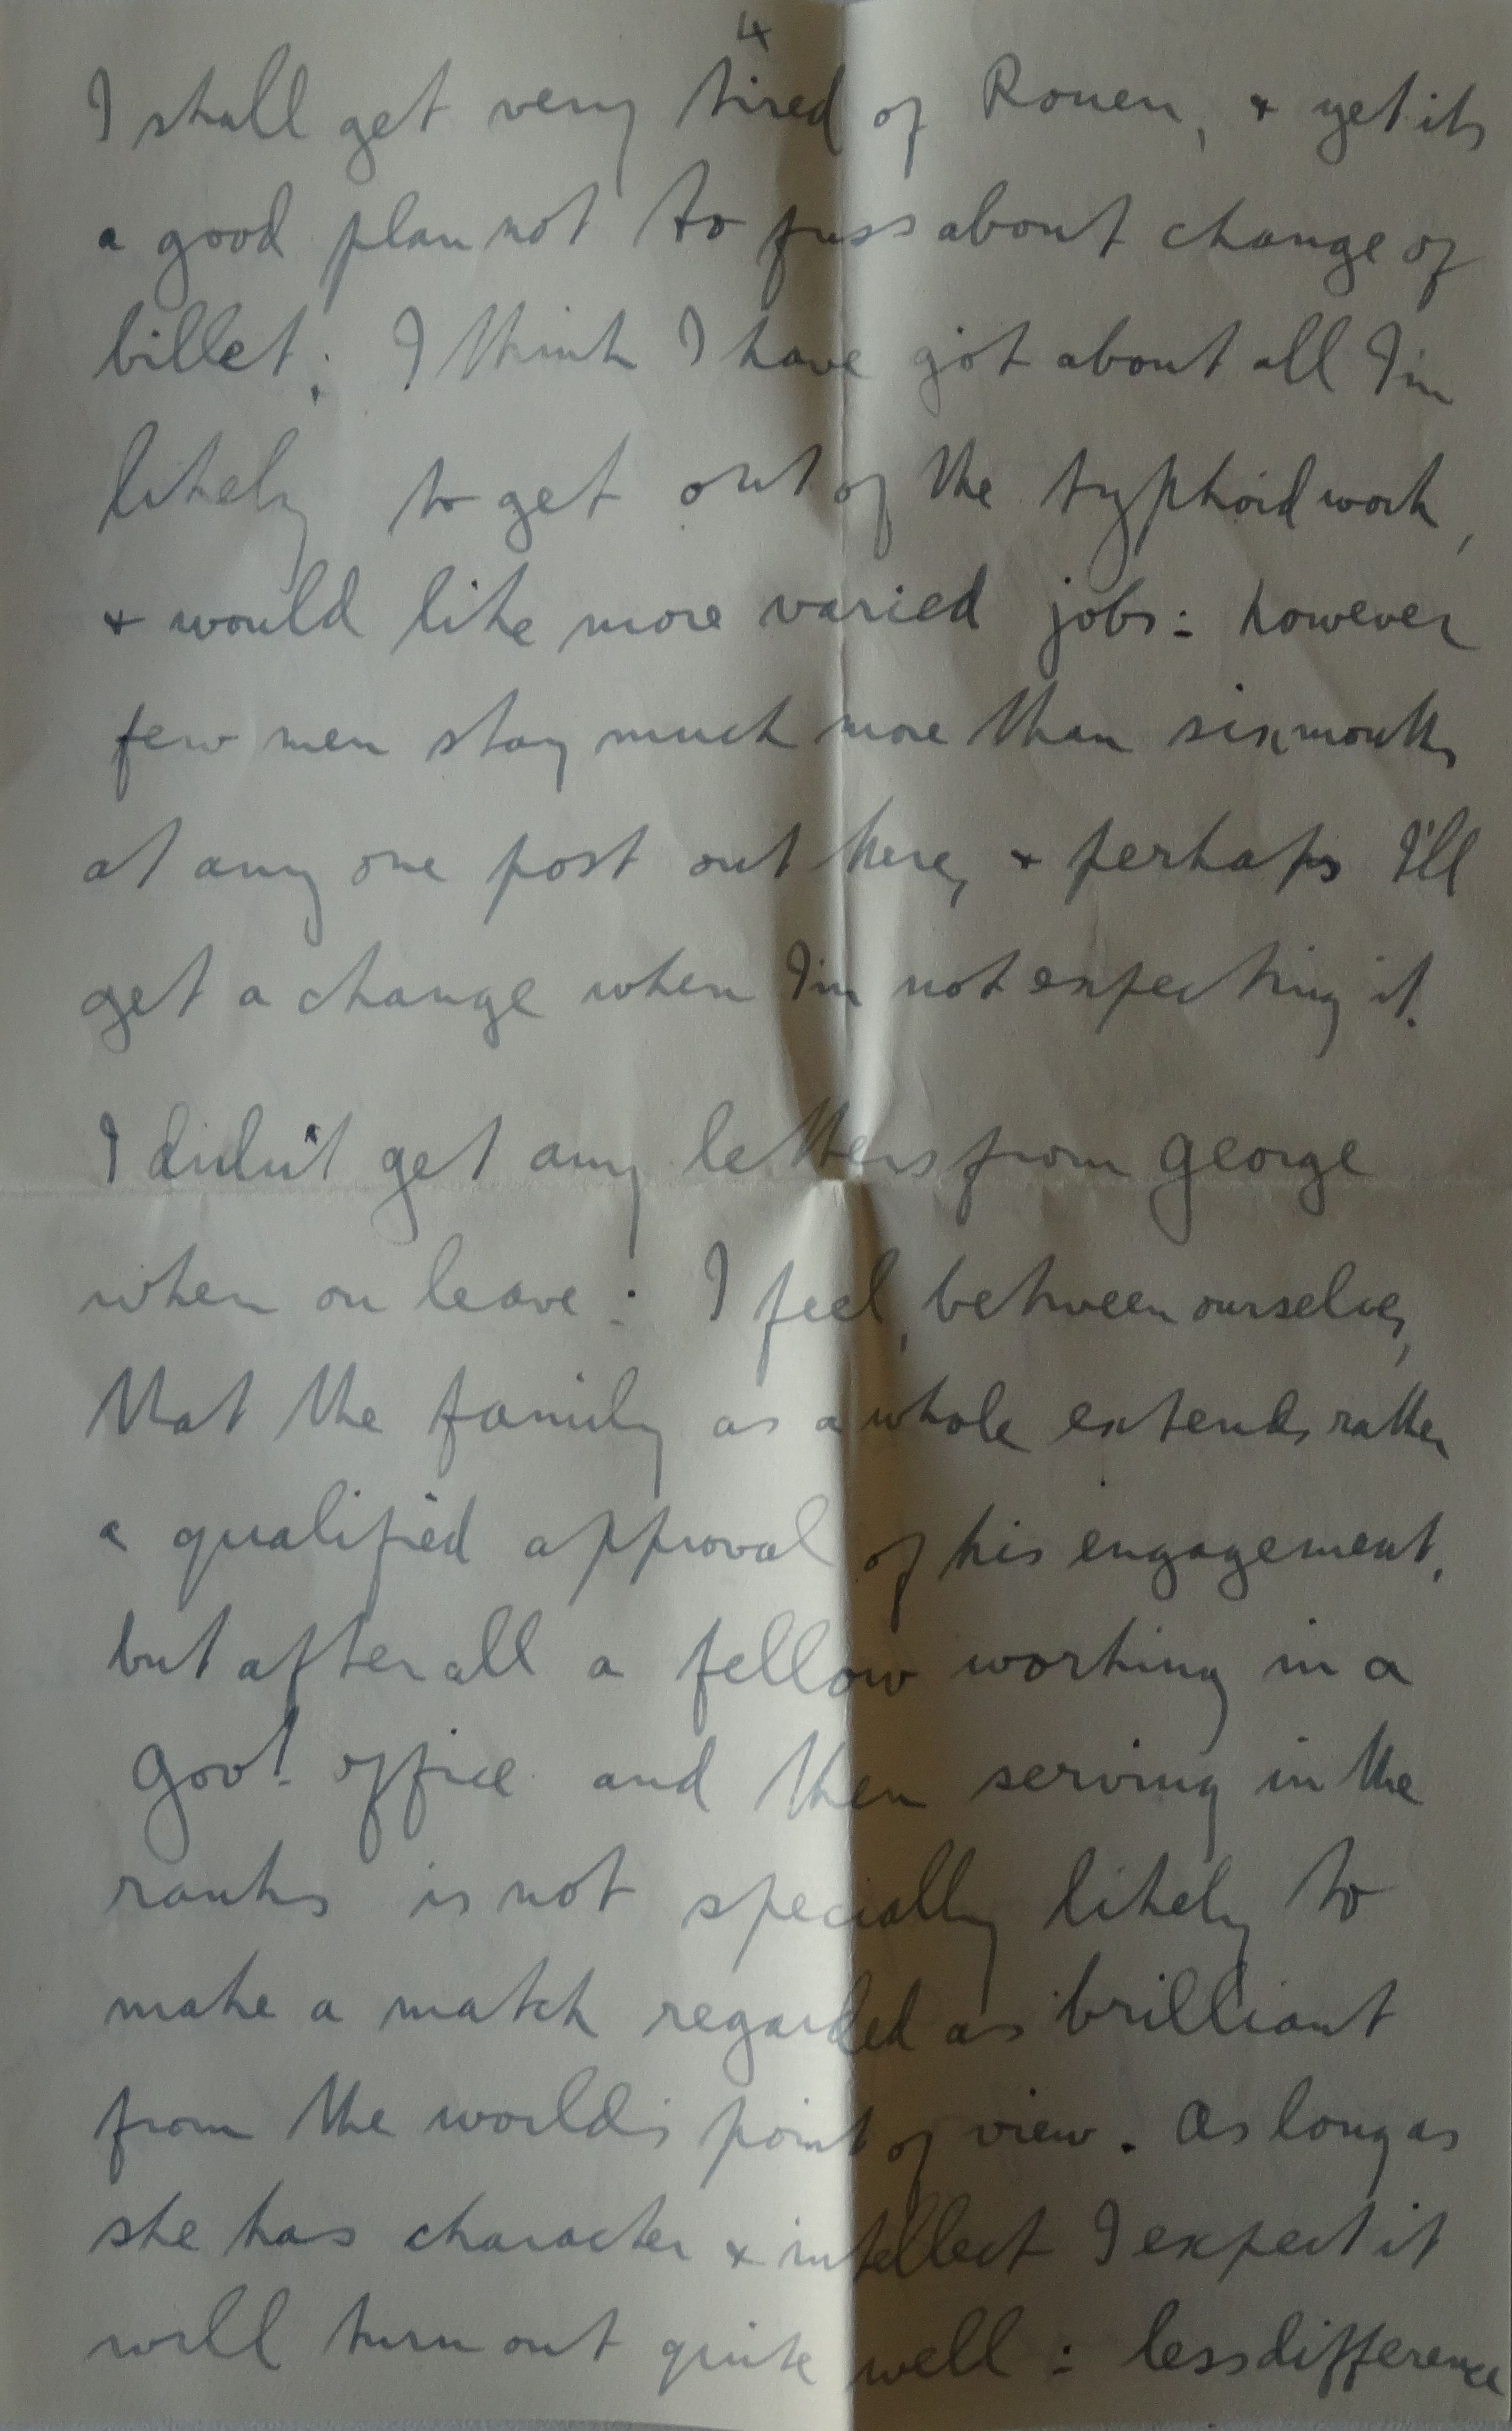 4
I shall get very tired of Rouen, & yet its
a good plan not to fuss about change of
billet; I think I have got about all I'm
likely to get out of the typhoid work,
& would like more varied jobs: however
few men stay much more than six months
at any one post out here, & perhaps I'll
get a change when I'm not expecting it.
I didn't get any letters from George
when on leave: I feel, between ourselves,
that the family as a whole extends rather
a qualified approval of his engagement,
but after all a fellow working in a
Govt. office and then serving in the
ranks is not specially likely to
make a match regarded as brilliant
from the world's point of view. As long as
she has character & intellect I expect it
will turn out quite well: less difference